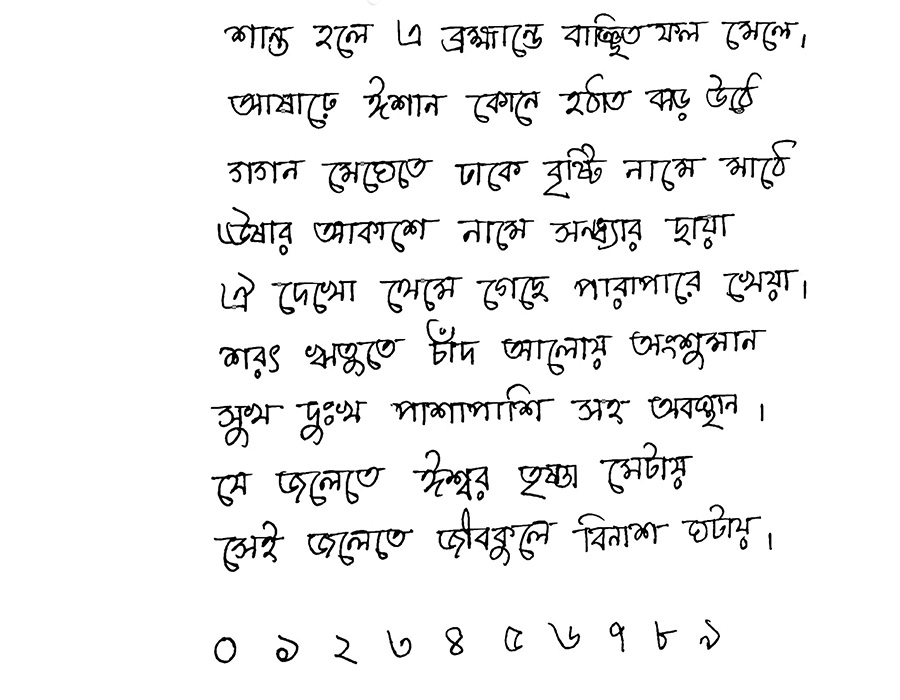 শান্ত হলে এ ব্রহ্মান্ডে বাঞ্ছিত ফল মেলে।
আষাঢ়ে ঈশান কোনে হঠাত ঝড় উঠে
গগন মেঘেতে ঢাকে বৃষ্টি নামে মাঠে
ঊষার আকাশে নামে সন্ধ্যার ছায়া
ঐ দেখো থেমে গেছে পারাপারে খেয়া।
শরৎ ঋতুতে চাঁদ আলোয় অংশুমান
সুখ দুঃখ পাশাপাশি সহ অবস্থান।
যে জলেতে ঈশ্বর তৃষ্ণা মেটায়
সেই জলেতে জীবকুলে বিনাশ ঘটায়।
০ ১ ২ ৩ ৪ ৫ ৬ ৭ ৮ ৯